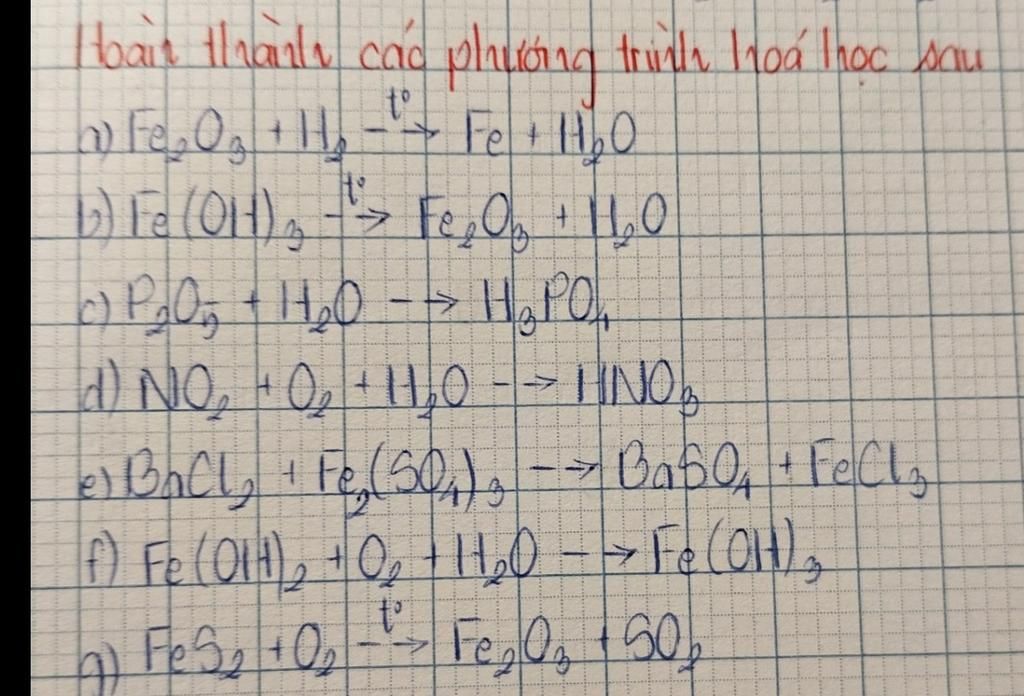 Hoàn thành các phương trình hoá học sau
a) Fe₂O₃ + H₂ --t°--> Fe + H₂O
b) Fe(OH)₃ --t°--> Fe₂O₃ + H₂O
c) P₂O₅ + H₂O --> H₃PO₄
d) NO₂ + O₂ + H₂O --> HNO₃
e) BaCl₂ + Fe₂(SO₄)₃ --> BaSO₄ + FeCl₃
f) Fe(OH)₂ + O₂ + H₂O --> Fe(OH)₃
g) FeS₂ + O₂ --t°--> Fe₂O₃ + SO₂